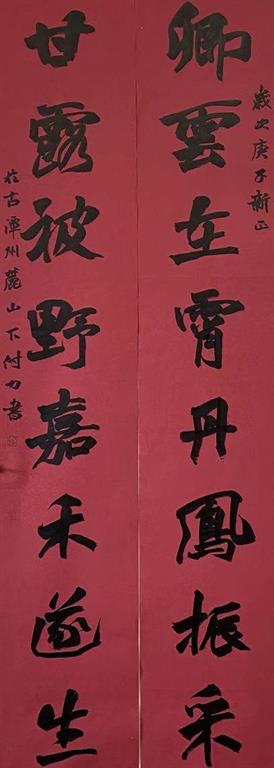 歲次庚子新正
卿雲在霄丹鳳振采
甘露被野嘉禾遂生
於古潭州麓山下付力書